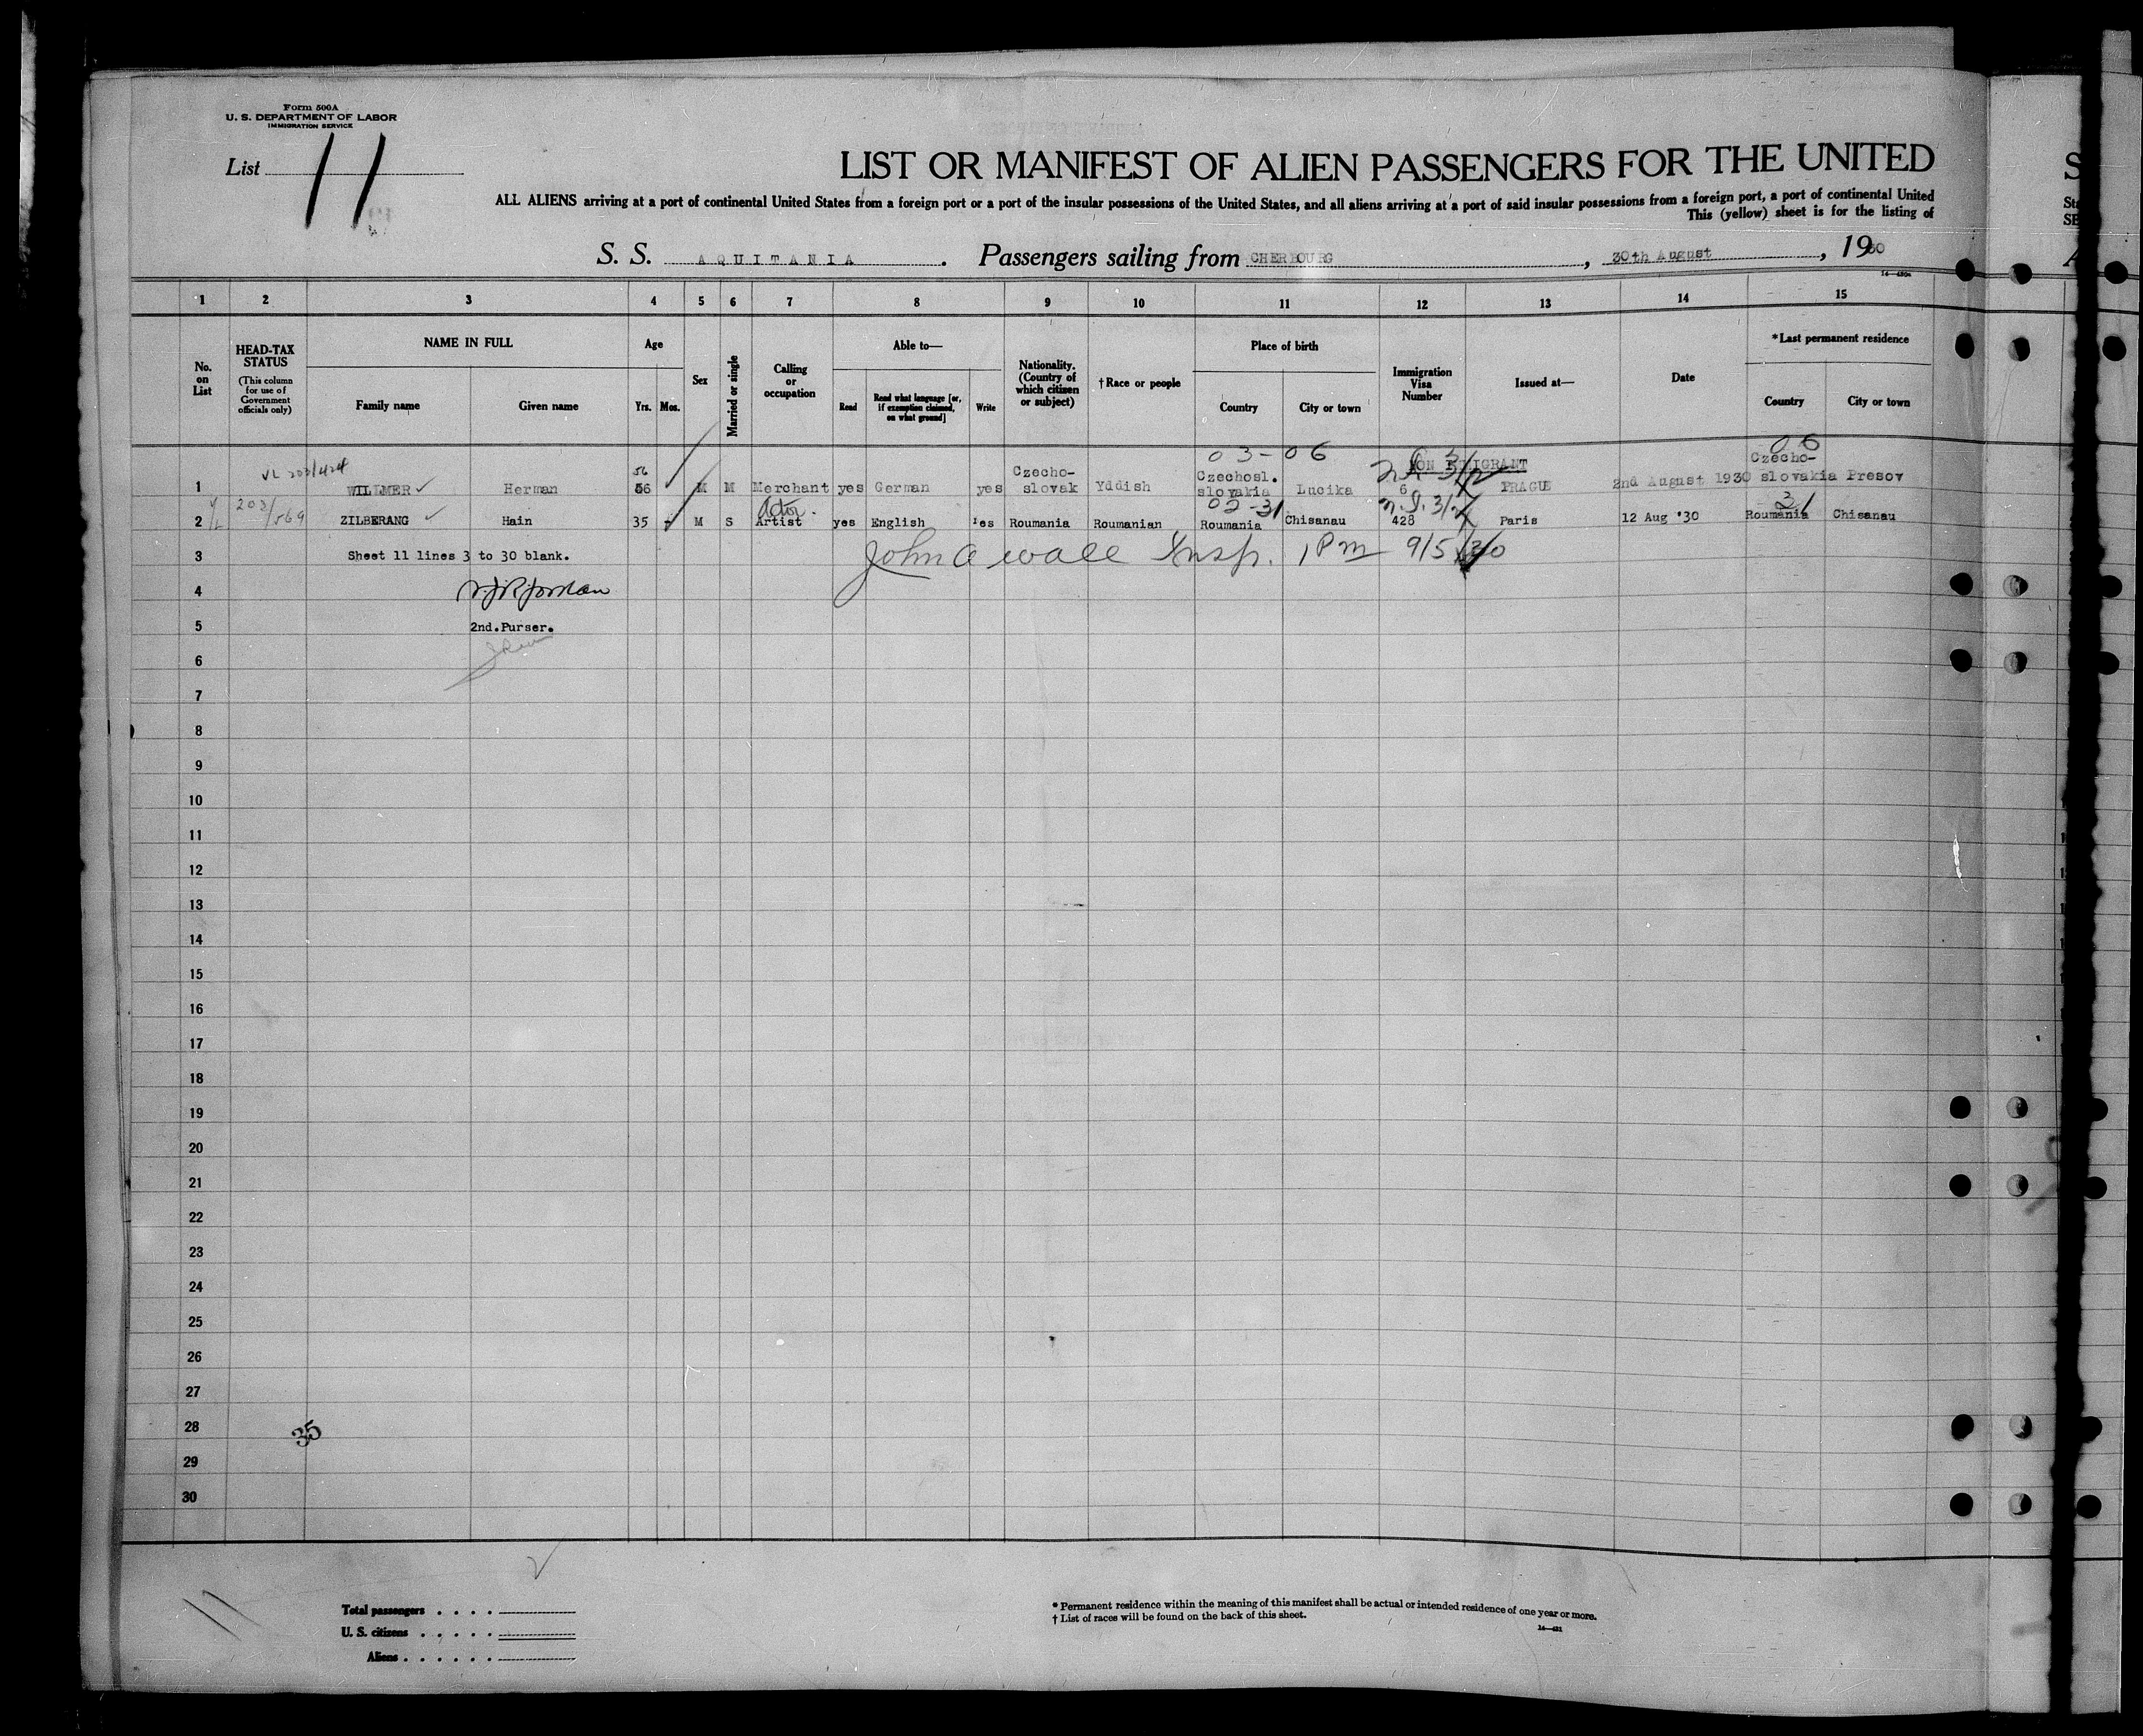 Form 500A
U. S. DEPARTMENT OF LABOR
IMMIGRATION SERVICE
List 11
LIST OR MANIFEST OF ALIEN PASSENGERS FOR THE UNITED
ALL ALIENS arriving at a port of continental United States from a foreign port or a port of the insular possessions of the United States, and all aliens arriving at a port of said insular possessions from a foreign port, a port of continental United
This (yellow) sheet is for the listing of
S. S. AQUITANIA. Passengers sailing from CHERBOURG, 30th August, 1930
1 2 3 4 5 6 7 8 9 10 11 12 13 14 15
No. on List
HEAD-TAX STATUS
(This column for use of Government officials only)
NAME IN FULL
Family name Given name
Age
Yrs. Mos.
Sex
Married or single
Calling or occupation
Able to—
Read
Read what language [or, if exemption claimed, on what ground]
Write
Nationality. (Country of which citizen or subject)
† Race or people
Place of birth
Country City or town
Immigration Visa Number
Issued at—
Date
*Last permanent residence
Country City or town
03-06 06
VL 203/424 56 Czecho- Czechosl. NON EMIGRANT Czecho-
1 WILLMER Herman 56 M M Merchant yes German yes slovak Yddish slovakia Lucika 6 PRAGUE 2nd August 1930 slovakia Presov
203/569 Actor. 02-31 31
2 ZILBERANG Hain 35 - M S Artist yes English Yes Roumania Roumanian Roumania Chisanau 428 Paris 12 Aug '30 Roumania Chisanau
3 Sheet 11 lines 3 to 30 blank. John A Wall Insp. 1 Pm 9/5/30
4
5 2nd.Purser.
6
7
8
9
10
11
12
13
14
15
16
17
18
19
20
21
22
23
24
25
26
27
28 35
29
30
Total passengers . . . .
U. S. citizens . . . . .
Aliens . . . . . .
* Permanent residence within the meaning of this manifest shall be actual or intended residence of one year or more.
† List of races will be found on the back of this sheet.